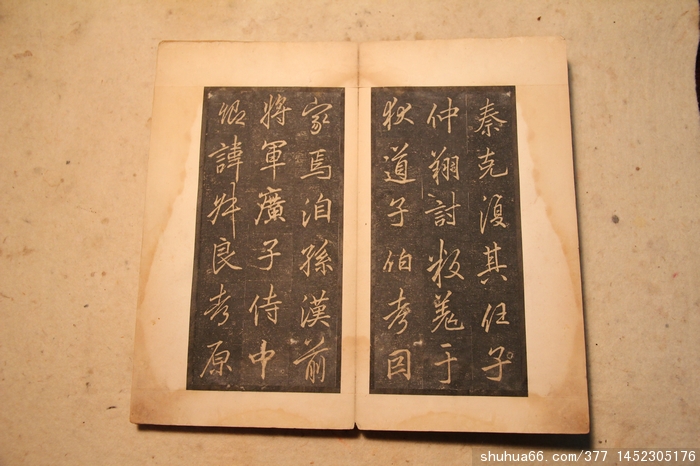 秦克復其任子
仲翔討叛羌于
狄道子伯考因
家焉洎孫漢前
將軍廣子侍中
卿諱叔良考原
shuhua66.com/377 1452305176